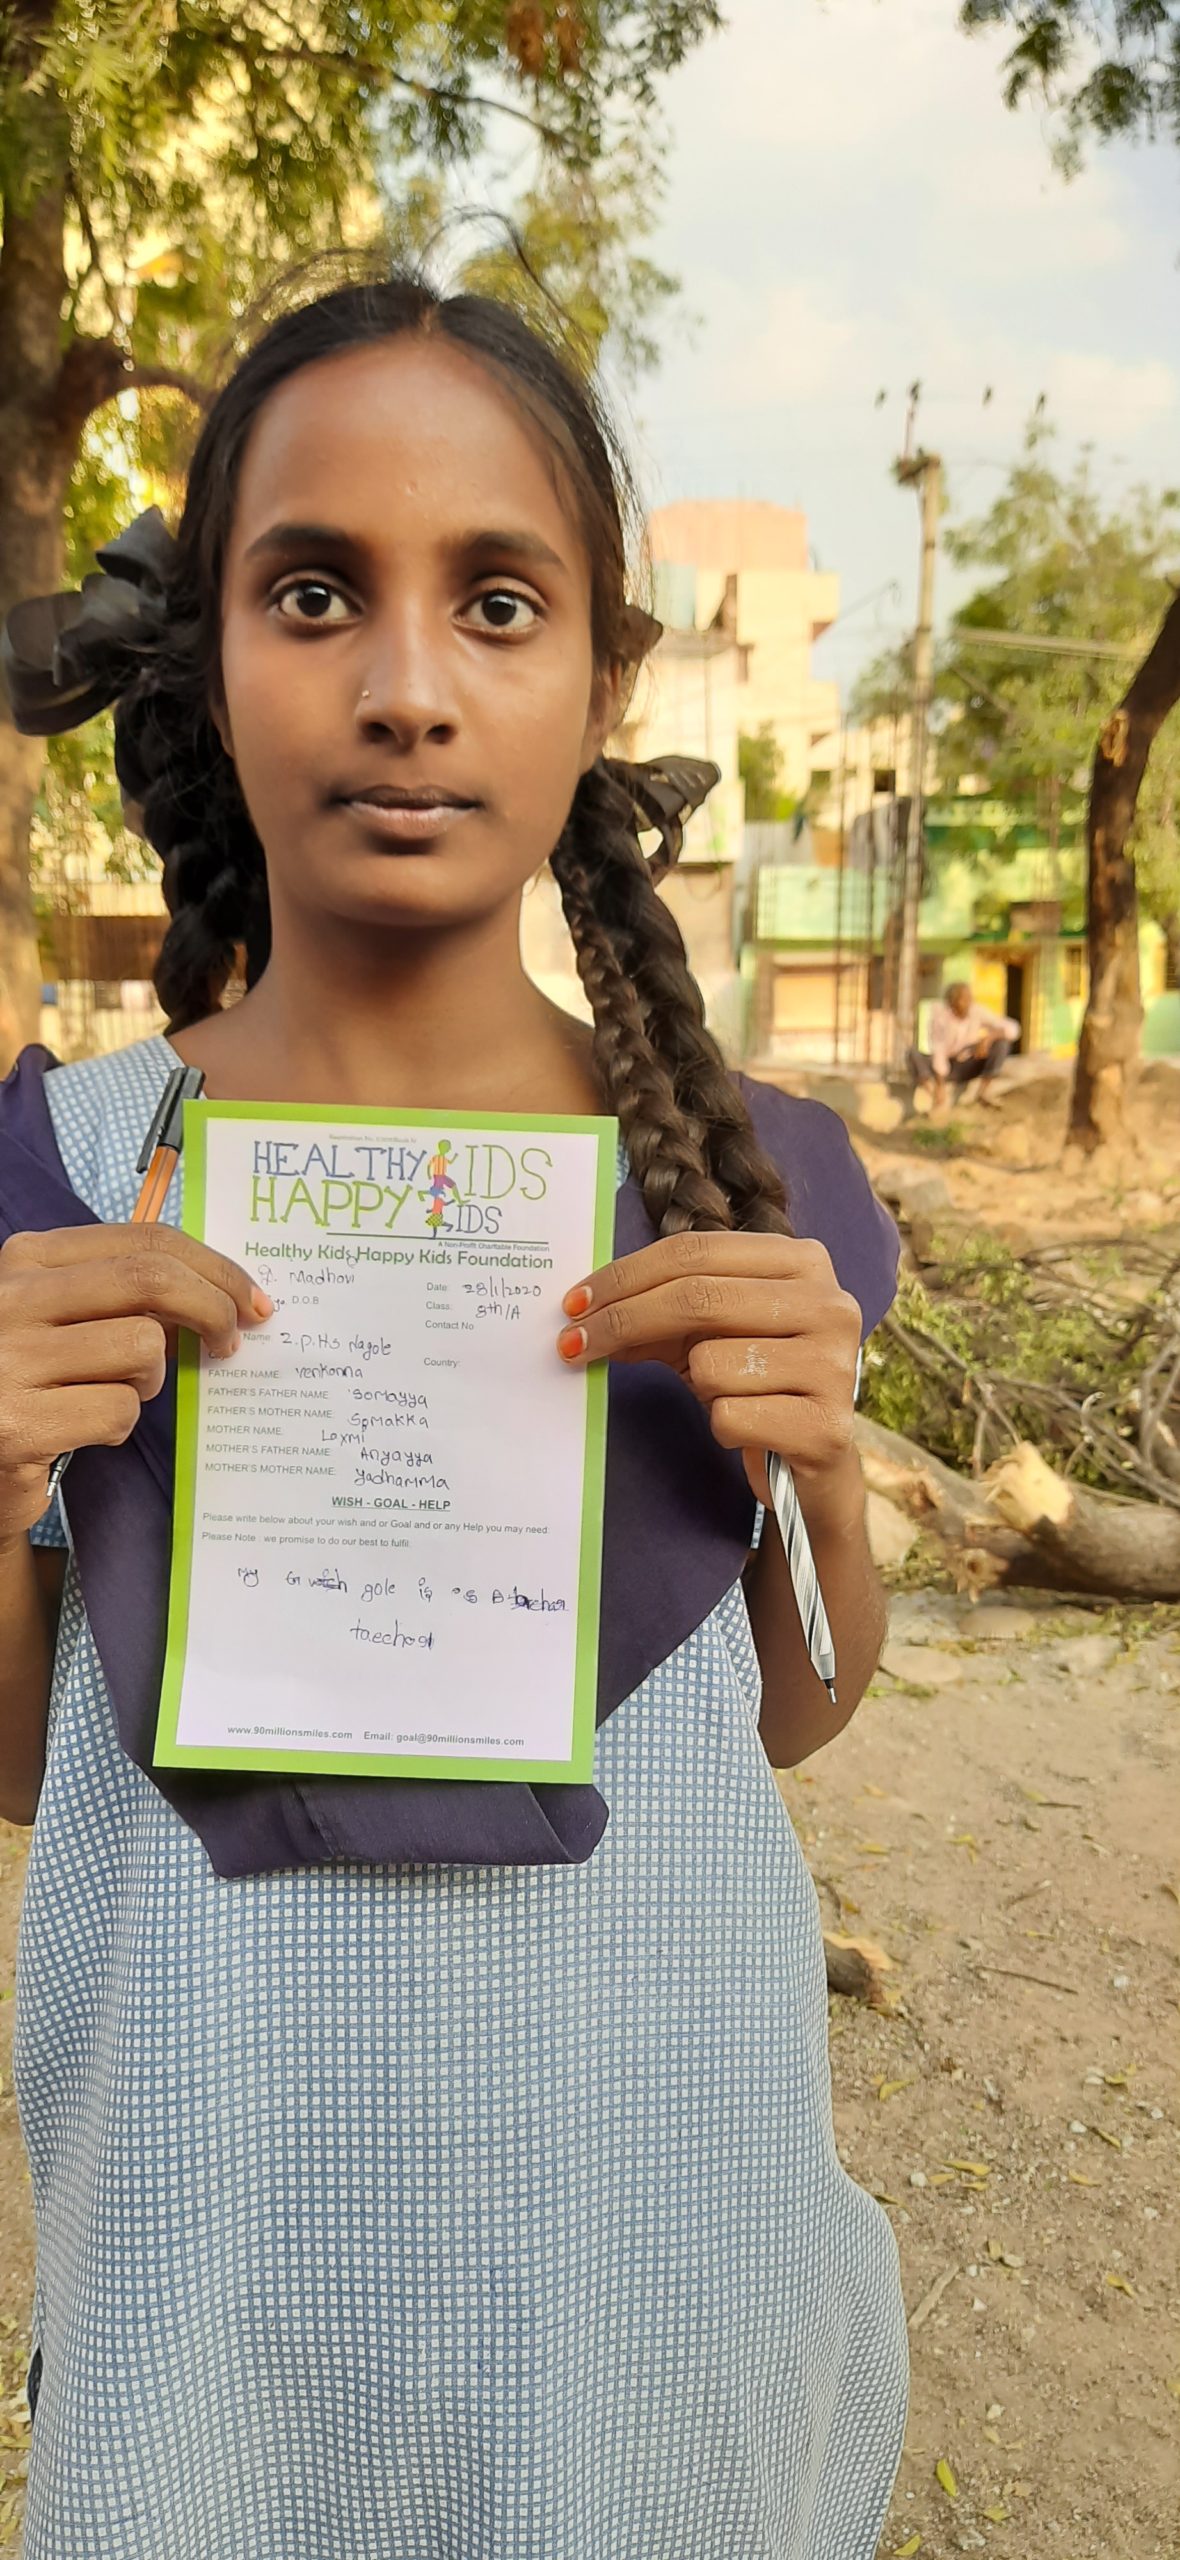 HEALTHY KIDS
HAPPY KIDS
A Non-Profit Charitable Foundation
Healthy Kids Happy Kids Foundation
Madhavi
Date: 28/1/2020
D.O.B
Class: 8th/A
Contact No
Name: Z.p.Hs Nagole
Country:
FATHER NAME: Venkanna
FATHER'S FATHER NAME: Somayya
FATHER'S MOTHER NAME: Somakka
MOTHER NAME: Laxmi
MOTHER'S FATHER NAME: Anjayya
MOTHER'S MOTHER NAME: yadhamma
WISH - GOAL - HELP
Please write below about your wish and or Goal and or any Help you may need:
Please Note : we promise to do our best to fulfil.
My gole is
www.90millionsmiles.com Email: goal@90millionsmiles.com